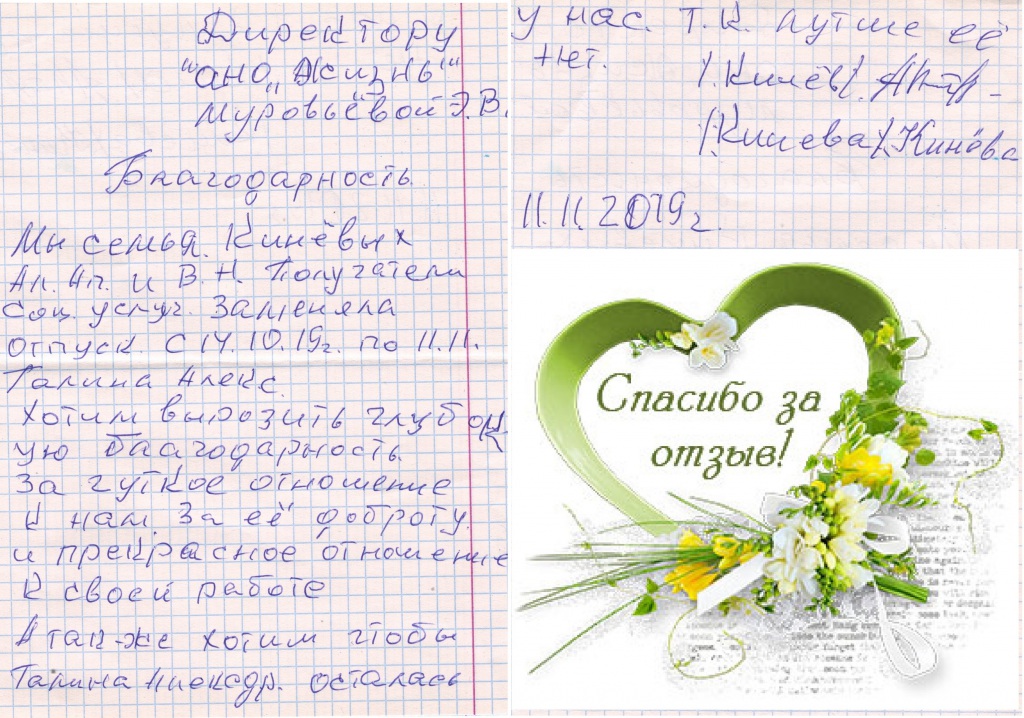 Директору
"ано „Жизнь"
Муровьёвой Э.В.
Благодарность
Мы семья. Кинёвых
Ал. Ап. и В. Н. Получатели
Соц. услуг. Заменяла
отпуск. с 14.10.19г. по 11.11.
Галина Алекс.
Хотим вырозить глубок
ую благодарность
За чуткое отношение
к нам. За её доброту.
и прекрасное отношение
к своей работе
А так-же хотим чтобы
Галина Александр. осталась
у нас. т.к. лутше её
нет.
/.Кинёв/.
/Кинева/. Кинёва
11.11.2019г.
Спасибо за
отзыв!